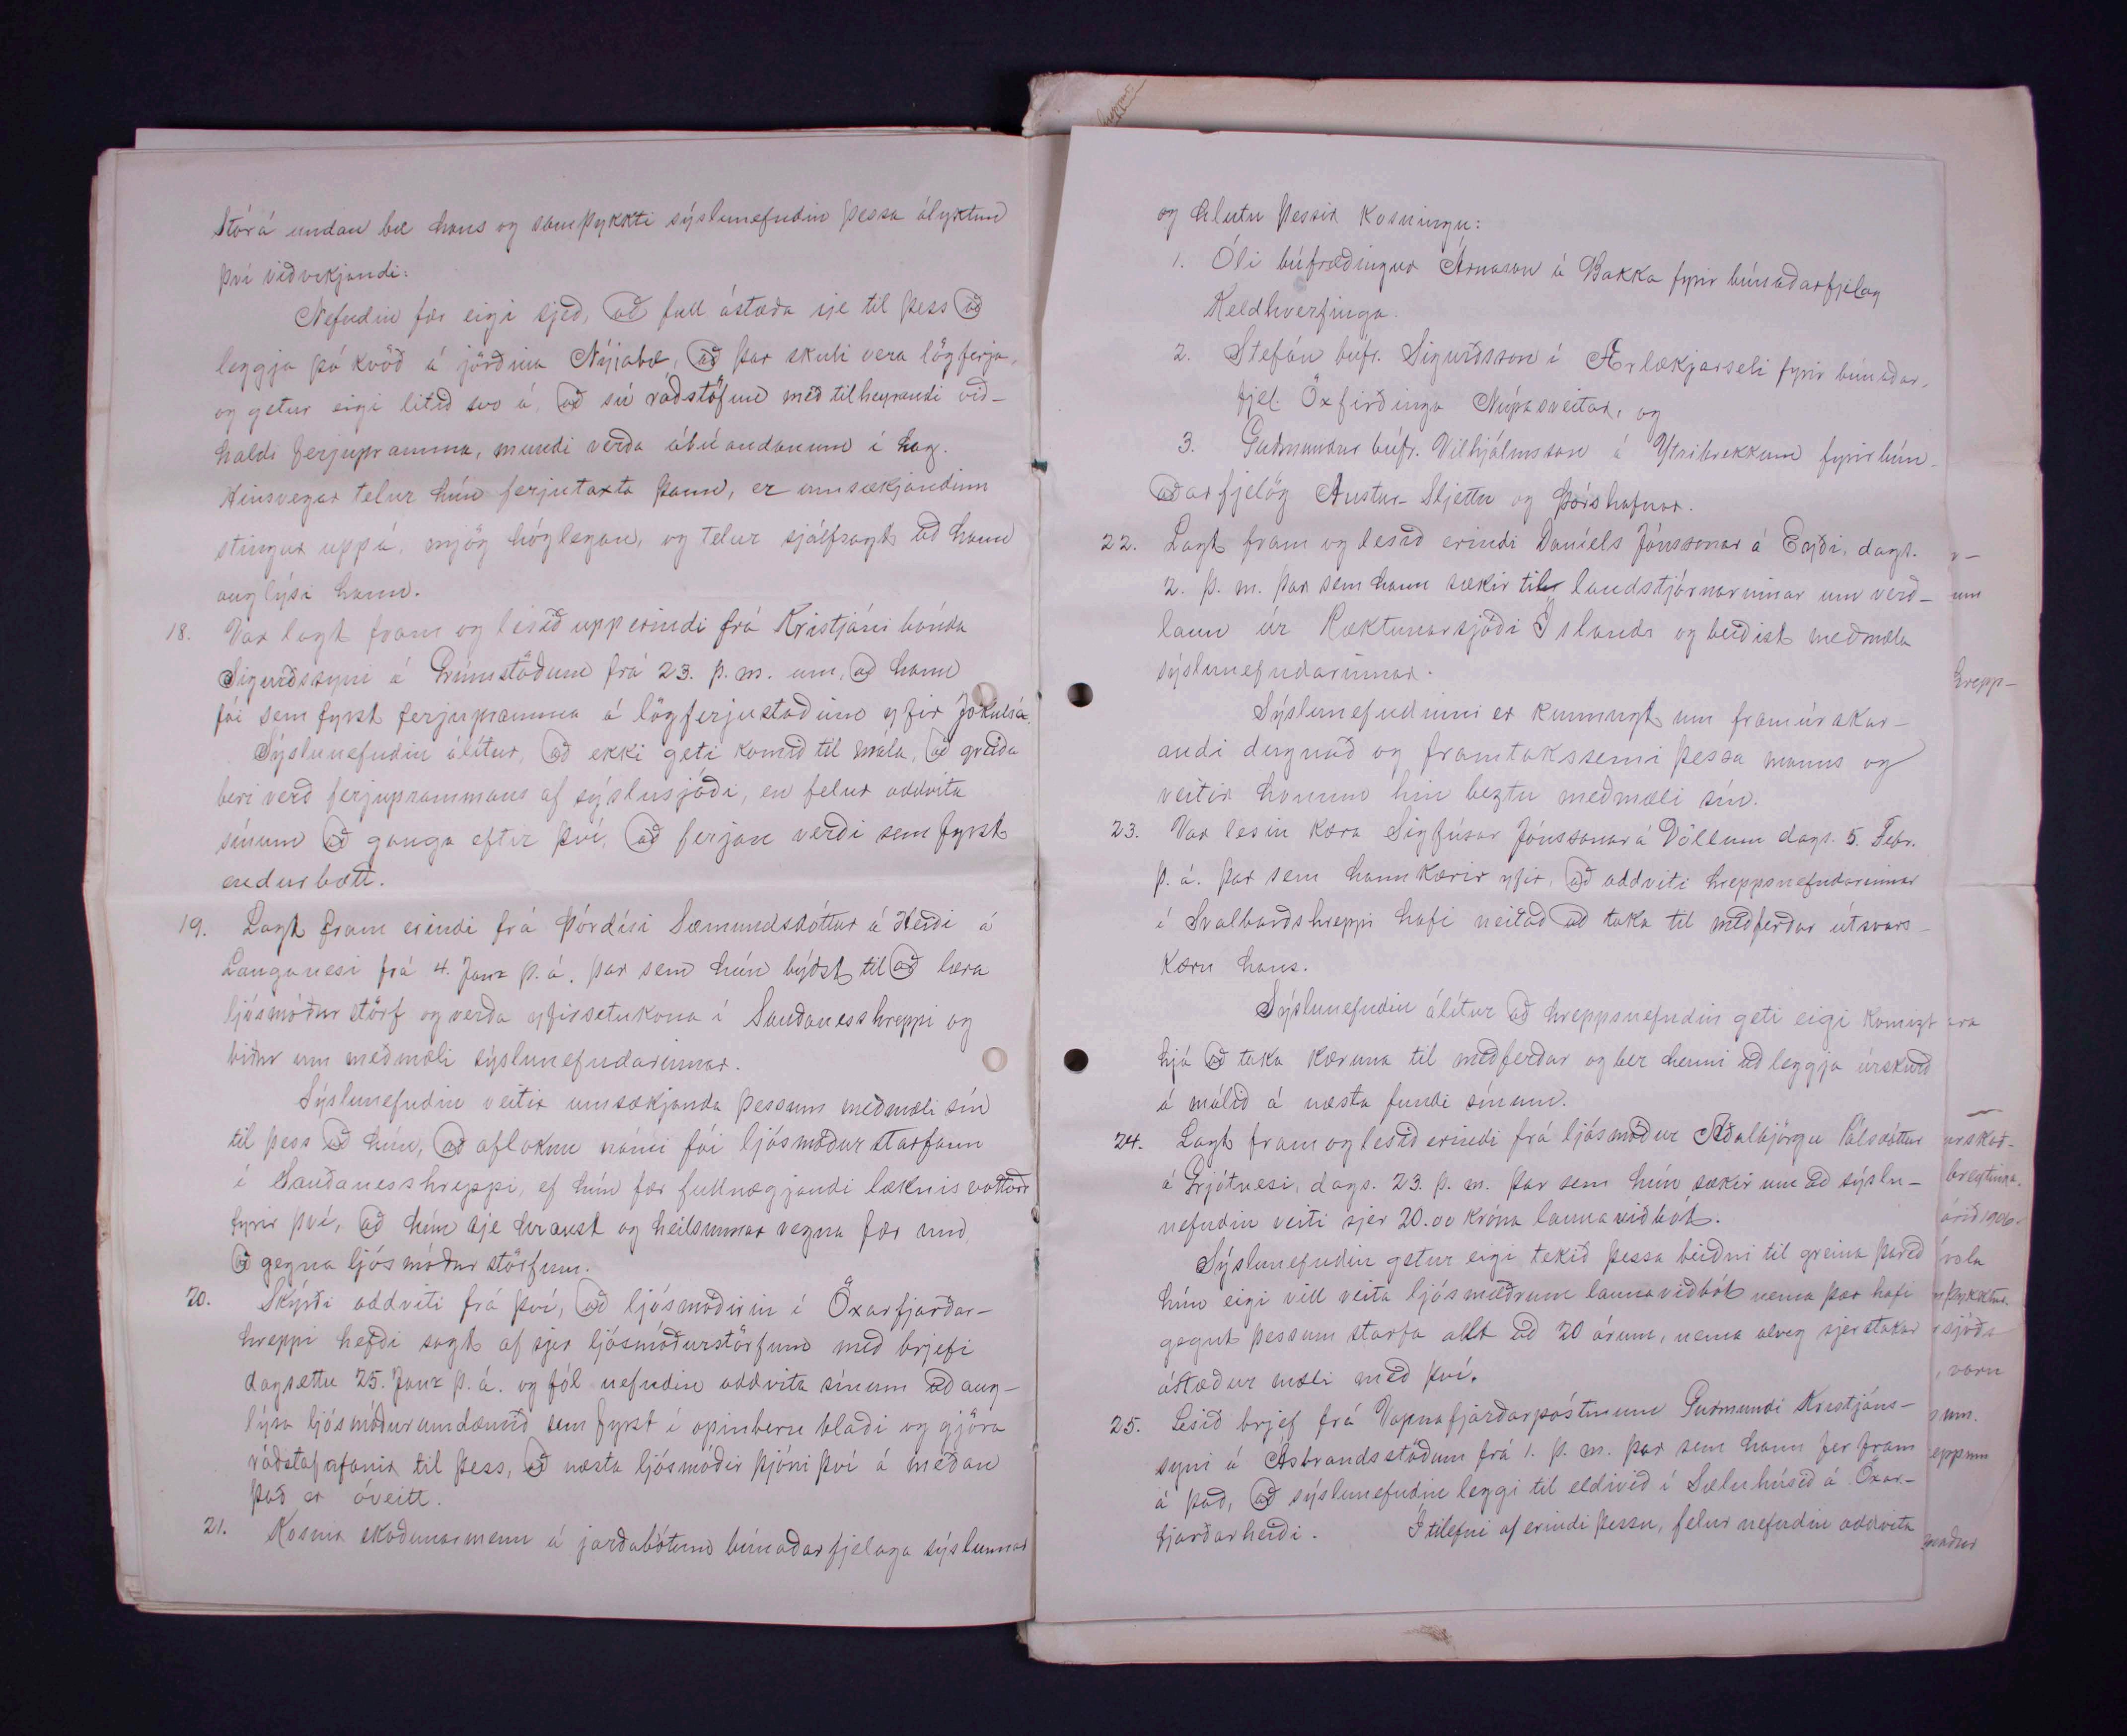 Stórá undan bæ hans og samþykkti sýslunefndin þessa ályktun
því viðvíkjandi:
Nefndin fær eigi sjeð, að full ástæða sje til þess að
leggja þá kvöð á jörðina Nýjabæ, að þar skuli vera lögferja,
og getur eigi litið svo á, að sú ráðstöfun með tilheyrandi við-
haldi ferjupramma, mundi verða ábúandanum í hag.
Hinsvegar telur hún ferjutaxta þann, er umsækjandinn
stingur uppá, mjög hóglegan, og telur sjálfsagt að hann
auglýsi hann.
18. Var lagt fram og lesið upp erindi frá Kristjáni bónda
Sigurðssyni á Grímstöðum frá 23. þ. m. um, að hann
fái sem fyrst ferjupramma á lögferjustaðinn yfir Jökulsá.
Sýslunefndin álítur, að ekki geti komið til mála, að greiða
beri verð ferjuprammans af sýslusjóði, en felur oddvita
sínum að ganga eftir því, að ferjan verði sem fyrst
endurbætt.
19. Lagt fram erindi frá Þórdísi Sæmundsdóttur á Heiði á
Langanesi frá 4. Janr þ. á. þar sem hún býðst til að læra
ljósmóður störf og verða yfirsetukona í Sauðanesshreppi og
biður um meðmæli sýslunefndarinnar.
Sýslunefndin veitir umsækjanda þessum meðmæli sín
til þess að hún, að afloknu námi fái ljósmóður starfann
í Sauðanesshreppi, ef hún fær fullnægjandi læknis vottorð
fyrir því, að hún sje hraust og heilsunnar vegna fær um
að gegna ljósmóður störfum.
20. Skýrði oddviti frá því, að ljósmóðirin í Öxarfjarðar-
hreppi hefði sagt af sjer ljósmóðurstörfum með brjefi
dagsettu 25. Janr þ. á. og fól nefndin oddvita sínum að aug-
lýsa ljósmóðurumdæmið sem fyrst í opinberu blaði og gjöra
ráðstafanir til þess, að næsta ljósmóðir þjóni því á meðan
það er óveitt.
21. Kosnir skoðunarmenn á jarðabótum búnaðarfjelaga sýslunnar
og hlutu þessir kosningu:
1. Óli búfræðingur Árnason á Bakka fyrir búnaðarfjelag
Keldhverfinga.
2. Stefán búfr. Sigurðsson í Ærlækjarseli fyrir búnaðar-
fjel. Öxfirðinga Núpasveitar, og
3. Guðmundur búfr. Vilhjálmsson á Ytribrekkum fyrir bún-
aðarfjelög Austur-Sljettu og Þórshafnar.
22. Lagt fram og lesið erindi Daníels Jónssonar á Eyði, dags.
2. þ. m. þar sem hann sækir til landstjórnarinnar um verð-
laun úr Ræktunarsjóði Íslands og beiðist meðmæla
sýslunefndarinnar.
Sýslunefndinni er kunnugt um framúrskar-
andi dugnað og framtakssemi þessa manns og
veitir honum hin beztu meðmæli sín.
23. Var lesin kæra Sigfúsar Jónssonar á Völlum dags. 5. Febr.
þ. á. þar sem hann kærir yfir, að oddviti hreppsnefndarinnar
í Svalbarðshreppi hafi neitað að taka til meðferðar útsvars-
kæru hans.
Sýslunefndin álítur að hreppsnefndin geti eigi komizt
hjá að taka kæruna til meðferðar og ber henni að leggja úrskurð
á málið á næsta fundi sínum.
24. Lagt fram og lesið erindi frá ljósmóður Aðalbjörgu Pálsdóttur
á Grjótnesi, dags. 23. þ. m. þar sem hún sækir um að sýslu-
nefndin veiti sjer 20.00 króna launaviðbót.
Sýslunefndin getur eigi tekið þessa beiðni til greina þareð
hún eigi vill veita ljósmæðrum launaviðbót nema þær hafi
gegnt þessum starfa allt að 20 árum, nema alveg sjerstakar
ástæður mæli með því.
25. Lesið brjef frá Vopnafjarðarpóstinum Guðmundi Kristjáns-
syni á Ásbrandsstöðum frá 1. þ. m. þar sem hann fer fram
á það, að sýslunefndin leggi til eldivið í Sæluhúsið á Öxar-
fjarðarheiði. Í tilefni af erindi þessu, felur nefndin oddvita
um
hrepp-
ara
urskoð-
breytinga.
árið 1906
sjóðs
, voru
um.
eppum
maður